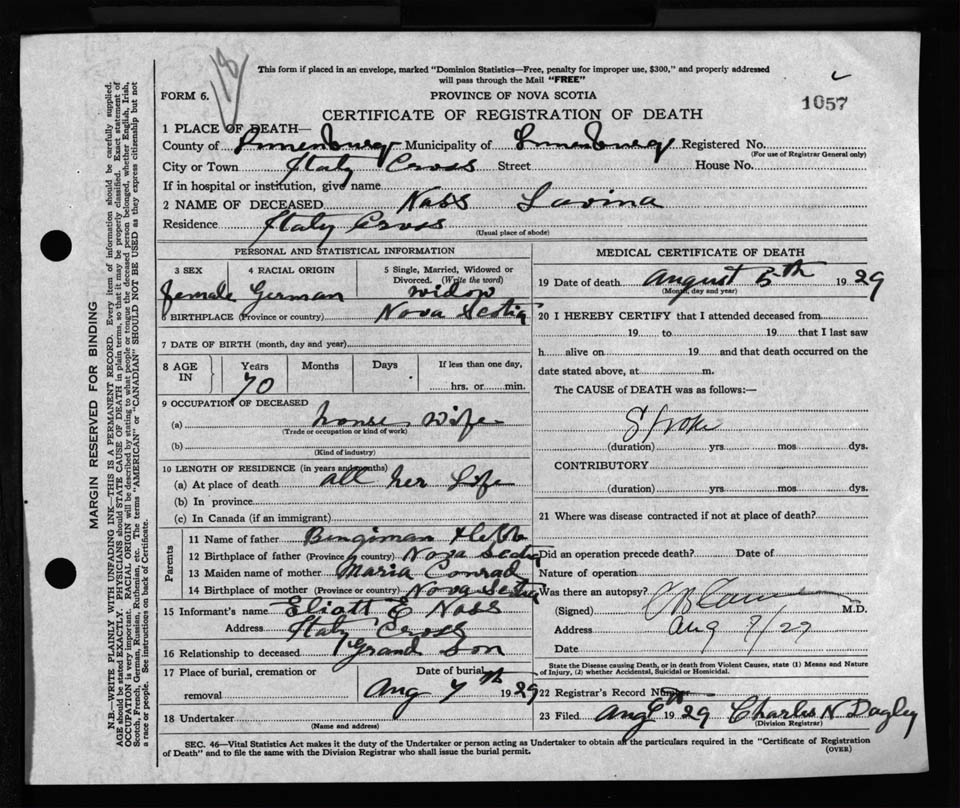 118
This form if placed in an envelope, marked "Dominion Statistics—Free, penalty for improper use, $300," and properly addressed
will pass through the Mail "FREE"
FORM 6.
PROVINCE OF NOVA SCOTIA
1057
CERTIFICATE OF REGISTRATION OF DEATH
1 PLACE OF DEATH—
County of Lunenburg Municipality of Lunenburg Registered No.
(For use of Registrar General only)
City or Town Italy Cross Street House No.
If in hospital or institution, give name
2 NAME OF DECEASED Nass Lavina
Residence Italy Cross
(Usual place of abode)
PERSONAL AND STATISTICAL INFORMATION
3 SEX 4 RACIAL ORIGIN 5 Single, Married, Widowed or
Divorced. (Write the word)
female German widow
6 BIRTHPLACE (Province or country) Nova Scotia
7 DATE OF BIRTH (month, day and year)
8 AGE IN Years Months Days If less than one day,
70 hrs. or min.
9 OCCUPATION OF DECEASED
(a) house wife
(Trade or occupation or kind of work)
(b)
(Kind of industry)
10 LENGTH OF RESIDENCE (in years and months)
(a) At place of death all her Life
(b) In province
(c) In Canada (if an immigrant)
Parents
11 Name of father Bingiman Hebb
12 Birthplace of father (Province or country) Nova Scotia
13 Maiden name of mother Maria Conrad
14 Birthplace of mother (Province or country) Nova Scotia
15 Informant's name Eliott E Nass
Address Italy Cross
16 Relationship to deceased Grand Son
17 Place of burial, cremation or Date of burial
removal Aug 7th 1929
18 Undertaker
(Name and address)
MEDICAL CERTIFICATE OF DEATH
19 Date of death August 5th 1929
(Month, day and year)
20 I HEREBY CERTIFY that I attended deceased from
19 to 19 that I last saw
h alive on 19 and that death occurred on the
date stated above, at m.
The CAUSE of DEATH was as follows:—
Stroke
(duration) yrs. mos dys.
CONTRIBUTORY
(duration) yrs. mos. dys.
21 Where was disease contracted if not at place of death?
Did an operation precede death? Date of
Nature of operation
Was there an autopsy?
(Signed) M.D.
Address Aug 7/29
Date
State the Disease causing Death, or in death from Violent Causes, state (1) Means and Nature
of Injury, (2) whether Accidental, Suicidal or Homicidal.
22 Registrar's Record Number
23 Filed Aug 6th 1929 Charles N Dagley
(Division Registrar)
SEC. 46—Vital Statistics Act makes it the duty of the Undertaker or person acting as Undertaker to obtain all the particulars required in the "Certificate of Registration
of Death" and to file the same with the Division Registrar who shall issue the burial permit.
(OVER)
MARGIN RESERVED FOR BINDING
N.B.—WRITE PLAINLY WITH UNFADING INK—THIS IS A PERMANENT RECORD. Every item of information should be carefully supplied.
AGE should be stated EXACTLY. PHYSICIANS should STATE CAUSE OF DEATH in plain terms, so that it may be properly classified. Exact statement of
OCCUPATION is very important. RACIAL ORIGIN will be described by stating to what people or tongue the deceased person belonged, whether English, Irish,
Scotch, French, German, Russian, Ruthenian, etc. The terms "AMERICAN" or "CANADIAN" SHOULD NOT BE USED as they express citizenship but not
a race or people. See instructions on back of Certificate.